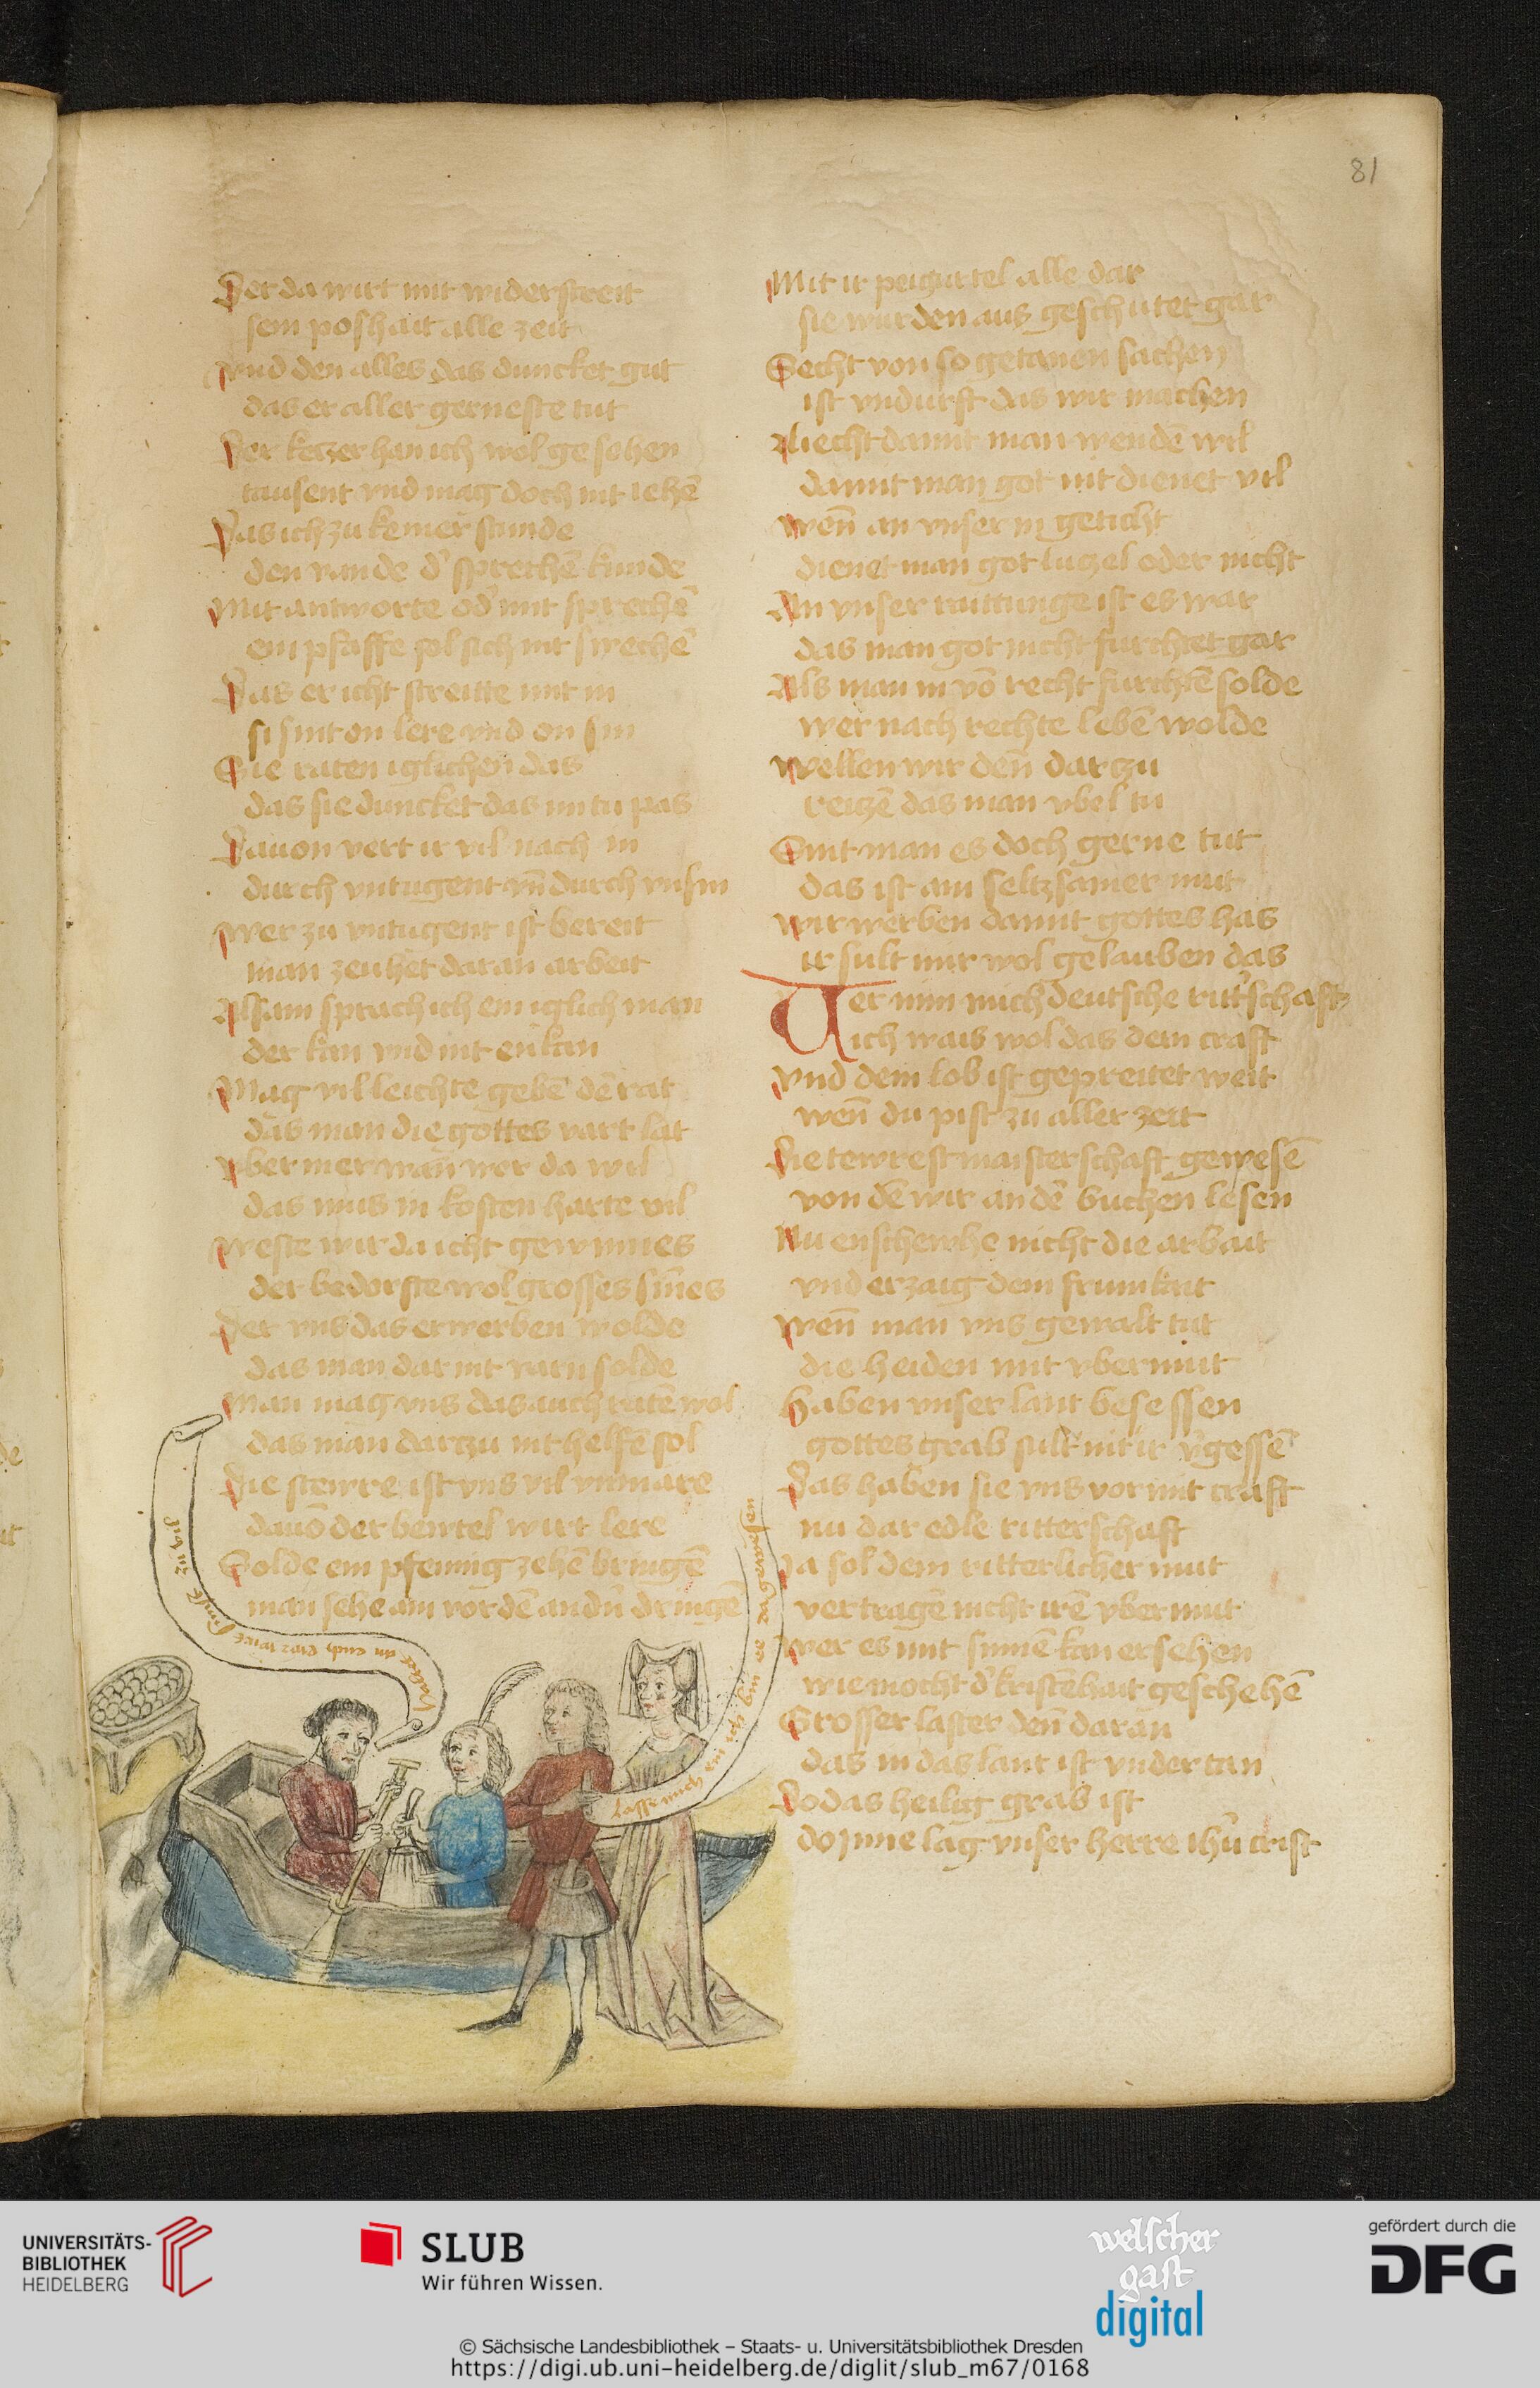 81
Der da wirt mit widerstreit
sein poshait alle zeit
vnd den alles das duncket gut
das er aller gerneste tut
Der ketzer han ich wol gesehen
tausent vnd mag doch nit iehē
Das ich zu keiner stunde
den vande d' sprechē kunde
Mit antworte od' mit sprechē
ein pfaffe sol sich nit swechē
Das er icht streitte mit in
si sint on lere vnd on sin
Sie raten iglichen das
das sie duncket das im tu pas
Dauon vert ir vil nach in
durch vntugent vn̄ durch vnsin
wer zu vntugent ist bereit
man zeuhet daran arbeit
Alsam sprach ich ein iglich man
der kan vnd nit enkan
Mag vil leichte gebē dē rat
das man die gottes vart lat
vber mer wan̄ wer da wil
das mus in kosten harte vil
weste wir da icht gewinnes
der bedorfte wol grosses sin̄es
Der vns das erwerben wolde
das man dar nit varn solde
Man mag vns das auch ratē wol
das man dartzu nit helfē sol
Die stewre ist vns vil vnmare
dauō der bewtel wirt lere
Solde ein pfennig zehē bringē
man sehe ain vor dē andn̄ dringē
Mit ir peigurtel alle dar
sie wurden aus geschutet gar
Secht von so getanen sachen
ist vndurft das wir machen
Niecht damit man wendē wil
damit man got nit dienet vil
wen̄ an vnser in geticht
dienet man got lutzel oder nicht
An vnser raittunge ist es war
das man got nicht furchtet gar
Als man in vō recht furchtē solde
wer nach rechte lebē wolde
wellen wir den̄ dar zu
reitzē das man vbel tu
Sint man es doch gerne tut
das ist ain seltzsamer mut
wir werben damit gottes has
ir sult mir wol gelauben das
Uer nim mich deutsche ritt'schaft
ich wais wol das dein craft
vnd dein lob ist gepreitet weit
wen̄ du pist zu aller zeit
Die tewrest maisterschaft gewesē
von dē wir an dē buchen lesen
Nu enschewhe nicht die arbait
vnd erzaig dein frumkait
wen̄ man vns gewalt tut
die heiden mit vbermut
Haben vnser lant besessen
gottes grab sult nit ir v'gessē
Das haben sie vns vor mit craft
nu dar edle ritterschaft
Ja sol dein ritterlicher mut
vertragē nicht irē vbermut
wer es mit sinnē kan ersehen
wie mocht d' kristēhait geschehē
Grosser laster den̄ daran
das in das lant ist vndertan
Do das heilig grab ist
do jnne lag vnser herre ihū crist
UNIVERSITÄTS-
BIBLIOTHEK
HEIDELBERG
SLUB
Wir führen Wissen.
welscher
gast
digital
gefördert durch die
DFG
© Sächsische Landesbibliothek – Staats- u. Universitätsbibliothek Dresden
https://digi.ub.uni-heidelberg.de/diglit/slub_m67/0168